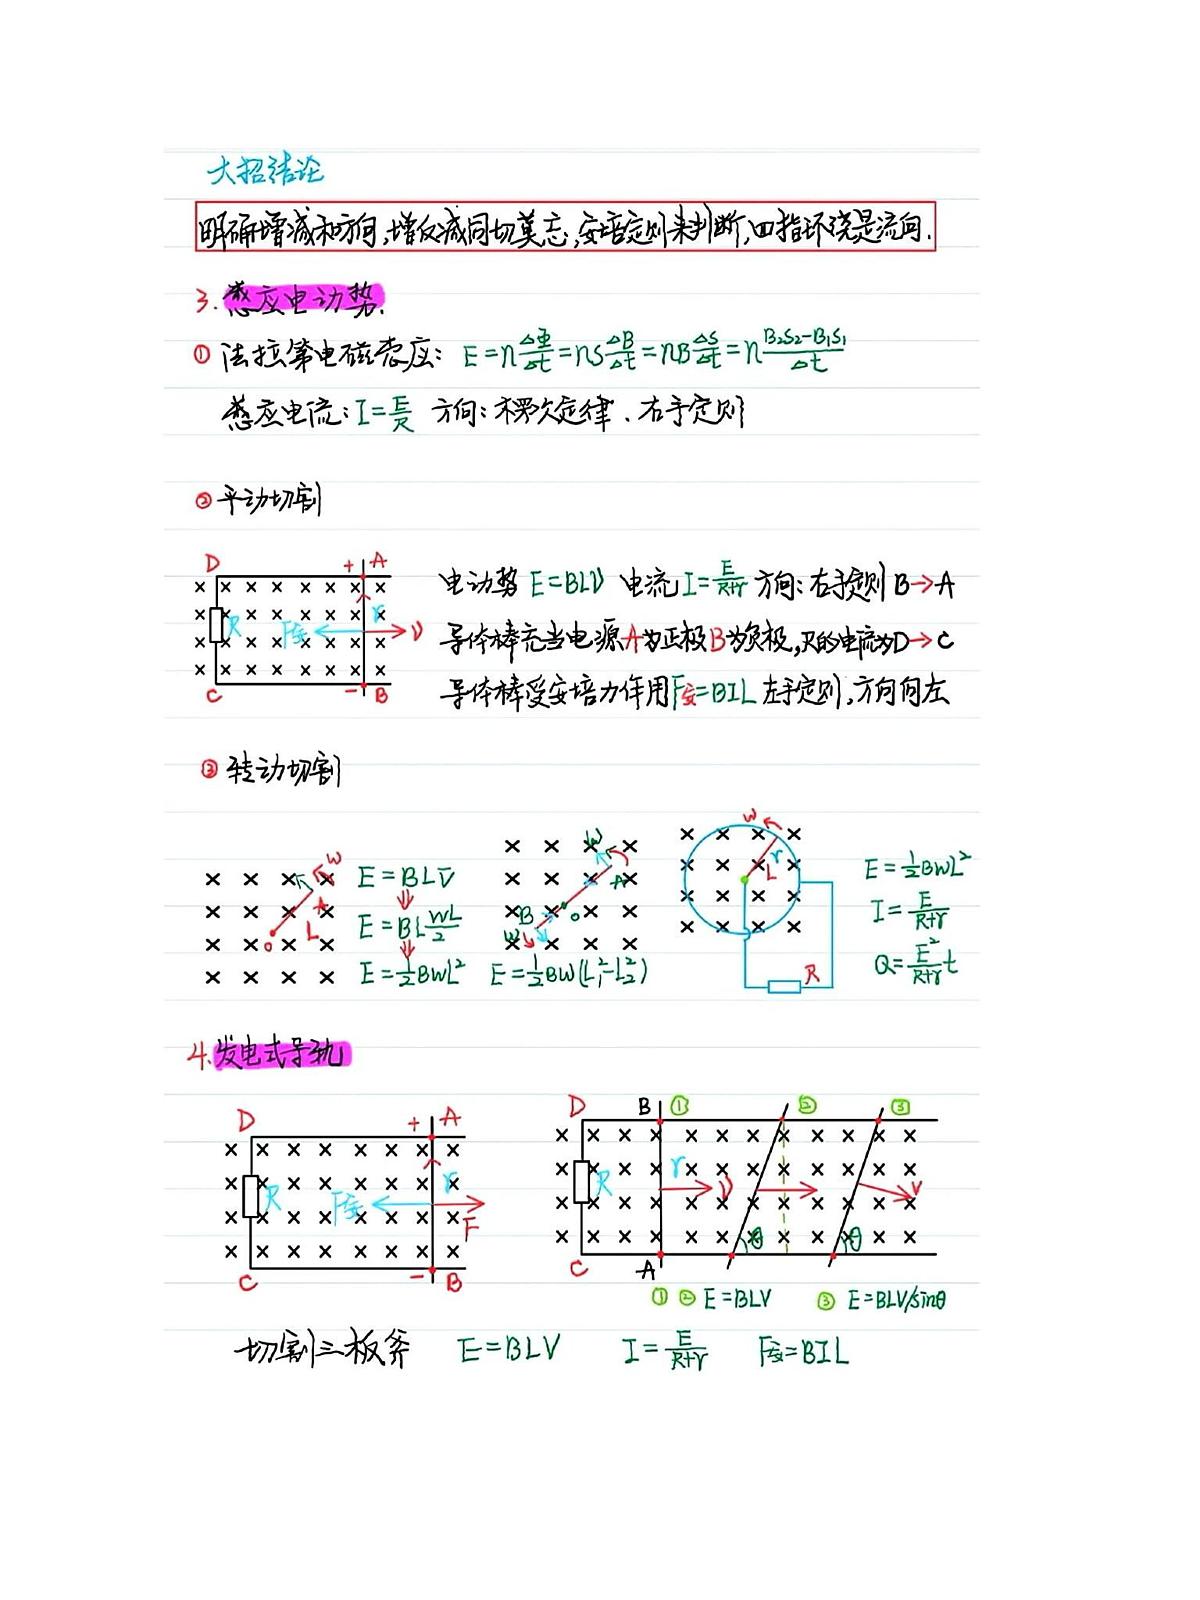 大招结论
明确增减和方向,增反减同切莫忘,安培定则来判断,四指环绕是流向.
3.感应电动势.
① 法拉第电磁感应: E=nΔΦ/Δt=nSΔB/Δt=nBΔS/Δt=n(B₂S₂-B₁S₁)/Δt
感应电流: I=E/R 方向:楞次定律、右手定则
② 平动切割
D + A
R F安 r v
C - B
电动势 E=BLV 电流 I=E/(R+r) 方向:右手定则 B→A
导体棒充当电源A为正极B为负极,R的电流为D→C
导体棒受安培力作用F安=BIL 左手定则,方向向左
③ 转动切割
w A L o
E=BLV̄
E=BL WL/2
E=½BWL²
W A o B W
E=½BW(L₁²-L₂²)
w r L R
E=½BWL²
I=E/(R+r)
Q=E²/(R+r) t
4.发电式导轨
D + A
R F安 r F
C - B
D B ① ② ③
R r v v
C A θ θ
① ② E=BLV ③ E=BLV/sinθ
切割三板斧 E=BLV I=E/(R+r) F安=BIL